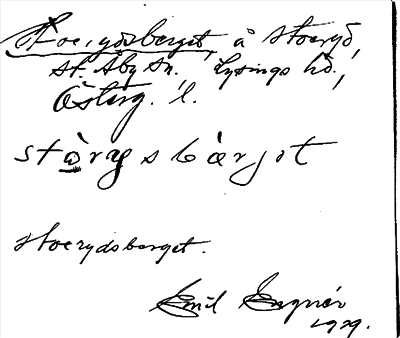 Stoerydsberget, å Stoeryd,
St. Åby sn. Lysings hd.,
Österg. l.
stòrysbærjet
Stoerydsberget.
Emil
1929.